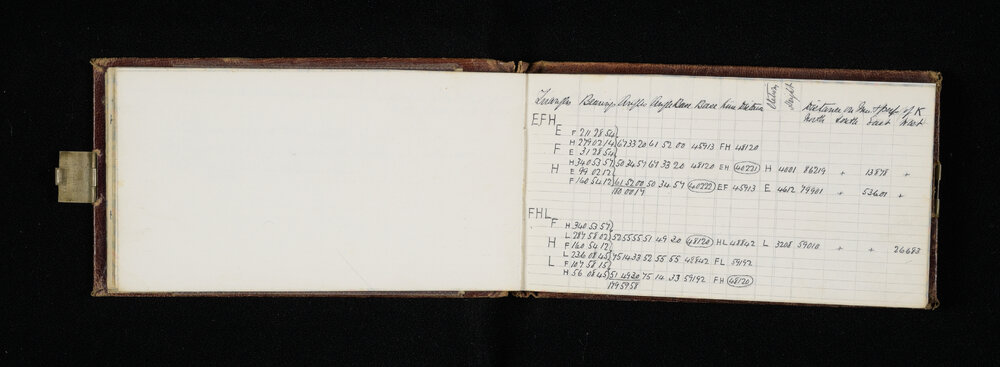 Triangles Bearings Angles Angle Base Base Line Distance Station Height Distance on Mer & Perp of K
North South East West
EFH
E F 211 28 54
H 279 02 14 67 33 20 61 52 00 45913 FH 48120
F E 31 28 54
H 340 53 57 50 34 57 67 33 20 48120 EH 40221 H 4001 86219 + 13878 +
H E 99 02 12
F 160 54 12 61 52 00 50 34 57 40222 EF 45913 E 4612 79901 + 53601 +
180 00 17
FHL
F H 340 53 57
L 287 58 02 52 55 55 51 49 30 48120 HL 48842 L 3208 59010 + + 26683
H F 160 54 12
L 236 08 45 75 14 33 52 55 55 48842 FL 59192
L F 107 58 15
H 56 08 45 51 49 30 75 14 33 59192 FH 48120
179 59 58